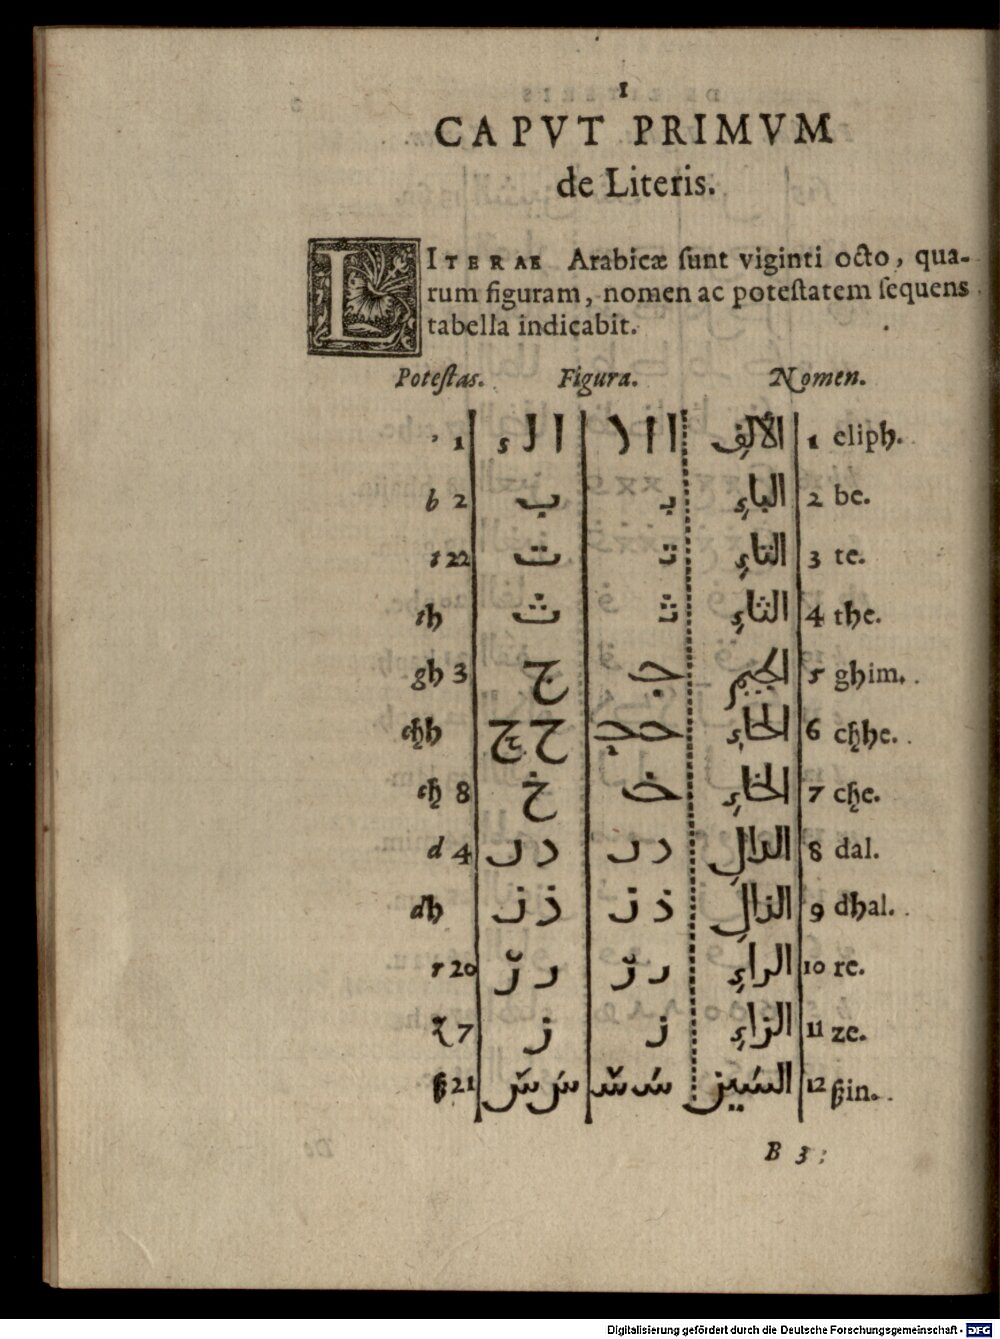 1
CAPVT PRIMVM
de Literis.
LITERAE Arabicæ ſunt viginti octo, qua-
rum figuram, nomen ac poteſtatem ſequens
tabella indicabit.
Poteſtas. Figura. Nomen.
ʼ 1 ا ﻟ ء ا ا ﻻ الألِفِ 1 eliph.
b 2 ب بـ الباءِ 2 be.
t 22 ت تـ التاءِ 3 te.
th ث ثـ الثاءِ 4 the.
gh 3 ج جـ الجيمِ 5 ghim.
chh ح ح حـ حـ الحاءِ 6 chhe.
ch 8 خ خـ الخاءِ 7 che.
d 4 د د الدالِ 8 dal.
dh ذ ذ الذالِ 9 dhal.
r 20 ر ر الراءِ 10 re.
z 7 ز ز الزاءِ 11 ze.
ß 21 س س سـ سـ السينِ 12 ßin.
B 3
Digitalisierung gefördert durch die Deutsche Forschungsgemeinschaft - DFG